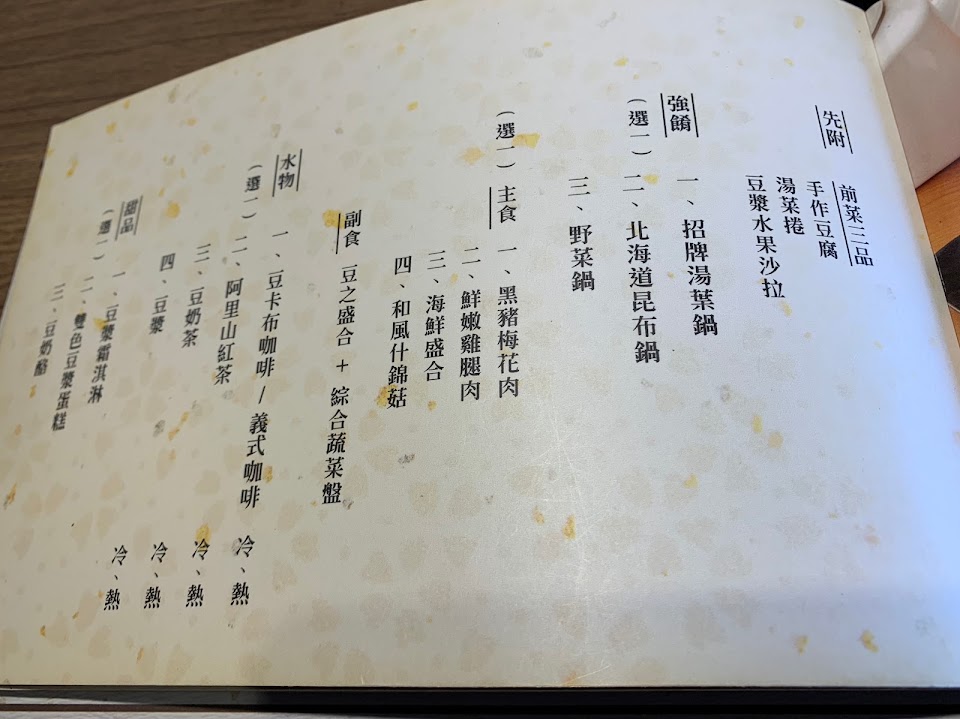 先附
前菜三品
手作豆腐
湯菜捲
豆漿水果沙拉
強餚
(選一)
一、招牌湯葉鍋
二、北海道昆布鍋
三、野菜鍋
(選一)主食
一、黑豬梅花肉
二、鮮嫩雞腿肉
三、海鮮盛合
四、和風什錦菇
副食 豆之盛合 + 綜合蔬菜盤
水物
(選一)
一、豆卡布咖啡/義式咖啡 冷、熱
二、阿里山紅茶 冷、熱
三、豆奶茶 冷、熱
四、豆漿 冷、熱
甜品
(選一)
一、豆漿霜淇淋
二、雙色豆漿蛋糕
三、豆奶酪